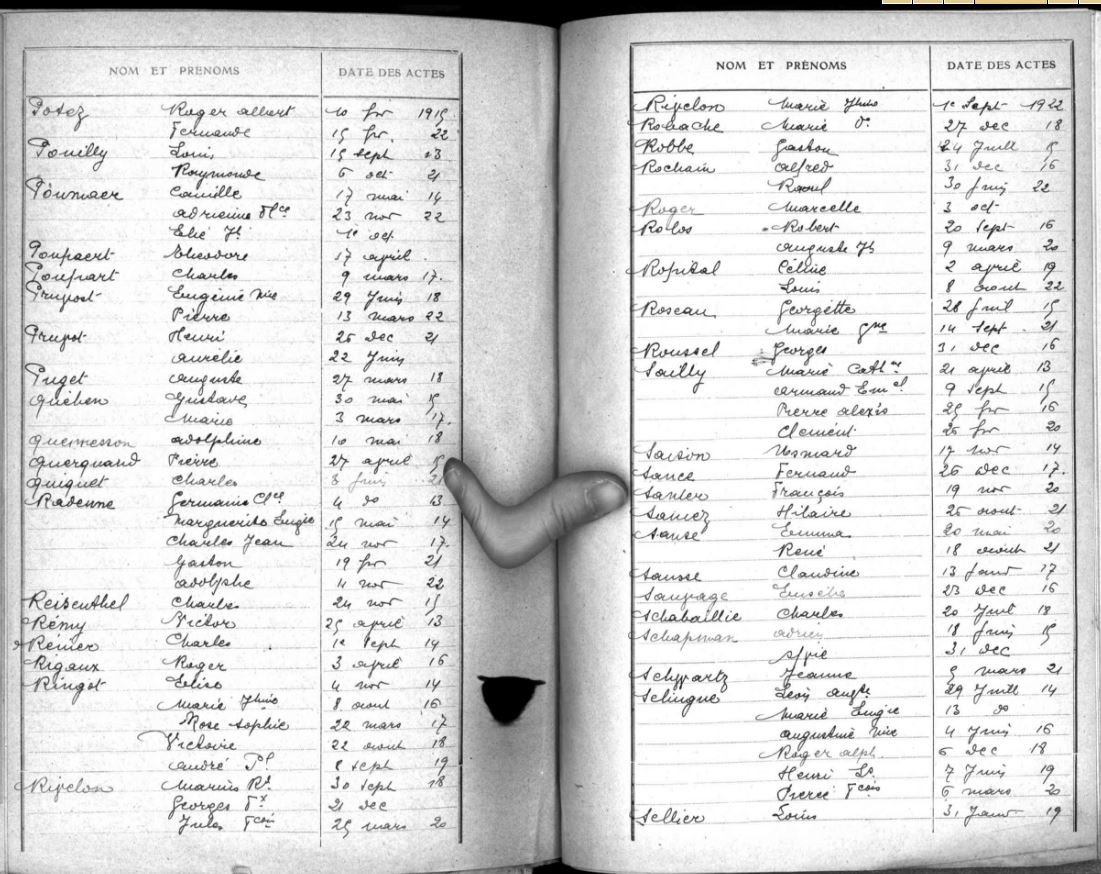 NOM ET PRÉNOMS DATE DES ACTES
Potez Roger albert 10 fer 1915
Fernande 15 fer 22
Pouilly Louis 15 sept 13
Raymonde 6 oct 21
Camille 17 mai 14
adrienne 23 nov 22
Elie Jh 1e oct
Poupaert théodore 17 april
Poupart Charles 9 mars 17.
Prupost Eugénie 29 Juin 18
Pierre 13 mars 22
Prupot Henri 26 dec 21
aurelie 22 Juin
Puget auguste 27 mars 18
Quéhen Gustave 30 mai 15
Marie 3 mars 17.
Quennesson adolphine 10 mai 18
Querquand Pierre 27 april 15
Quiquet Charles 8 Juin 21
Radenne Germaine 4 do 13
Marguerite Eugie 15 mai 14
Charles Jean 24 nov 17.
Gaston 19 fer 21
adolphe 4 nov 22
Reisenthel Charles 24 nov 15
Rémy Victor 25 april 13
Rénier Charles 1e Sept 14
Rigaux Roger 3 april 16
Ringot Elise 4 nov 14
Marie 8 aout 16
Rose Sophie 22 mars 17
Victoire 22 aout 18
andré Pl 8 sept 19
Ripelon Marius Rt 30 Sept 18
Georges 21 dec
Jules Fcois 25 mars 20
NOM ET PRÉNOMS DATE DES ACTES
Ripelon Marie 1e Sept 1922
Robache Marie 27 dec 18
Robbe Gaston 24 Juill 15
Rochain alfred 31 dec 16
Raoul 30 Juin 22
Roger Marcelle 3 oct
Rolos Robert 20 Sept 16
auguste Jh 9 mars 20
Ropital Céline 2 april 19
Louis 8 aout 22
Roseau Georgette 28 Juil 15
Marie 14 Sept 21
Roussel Georges 31 dec 16
Sailly Marie Cathne 21 april 13
armand 9 Sept 15
Pierre alexis 25 fer 16
Clement 26 fer 20
Saison 17 nov 14
Sance Fernand 26 dec 17.
Santer François 19 nov 20
Samez Hilaire 26 aout 21
Sansé Emma 20 mai 20
René 18 aout 21
Sausse Claudine 13 Janv 17
Sauvage Eusèbe 23 dec 16
Schabaillie Charles 20 Juil 18
Schapman adrien 18 Juin 15
31 dec
Schwartz Jeanne 5 mars 21
Selingue Léon augte 29 Juill 14
Marie Eugie 13 do
augustine 4 Juin 16
Roger alph. 6 dec 18
Henri Ls 7 Juin 19
Pierre Fcois 6 mars 20
Sellier Louis 31 Janv 19